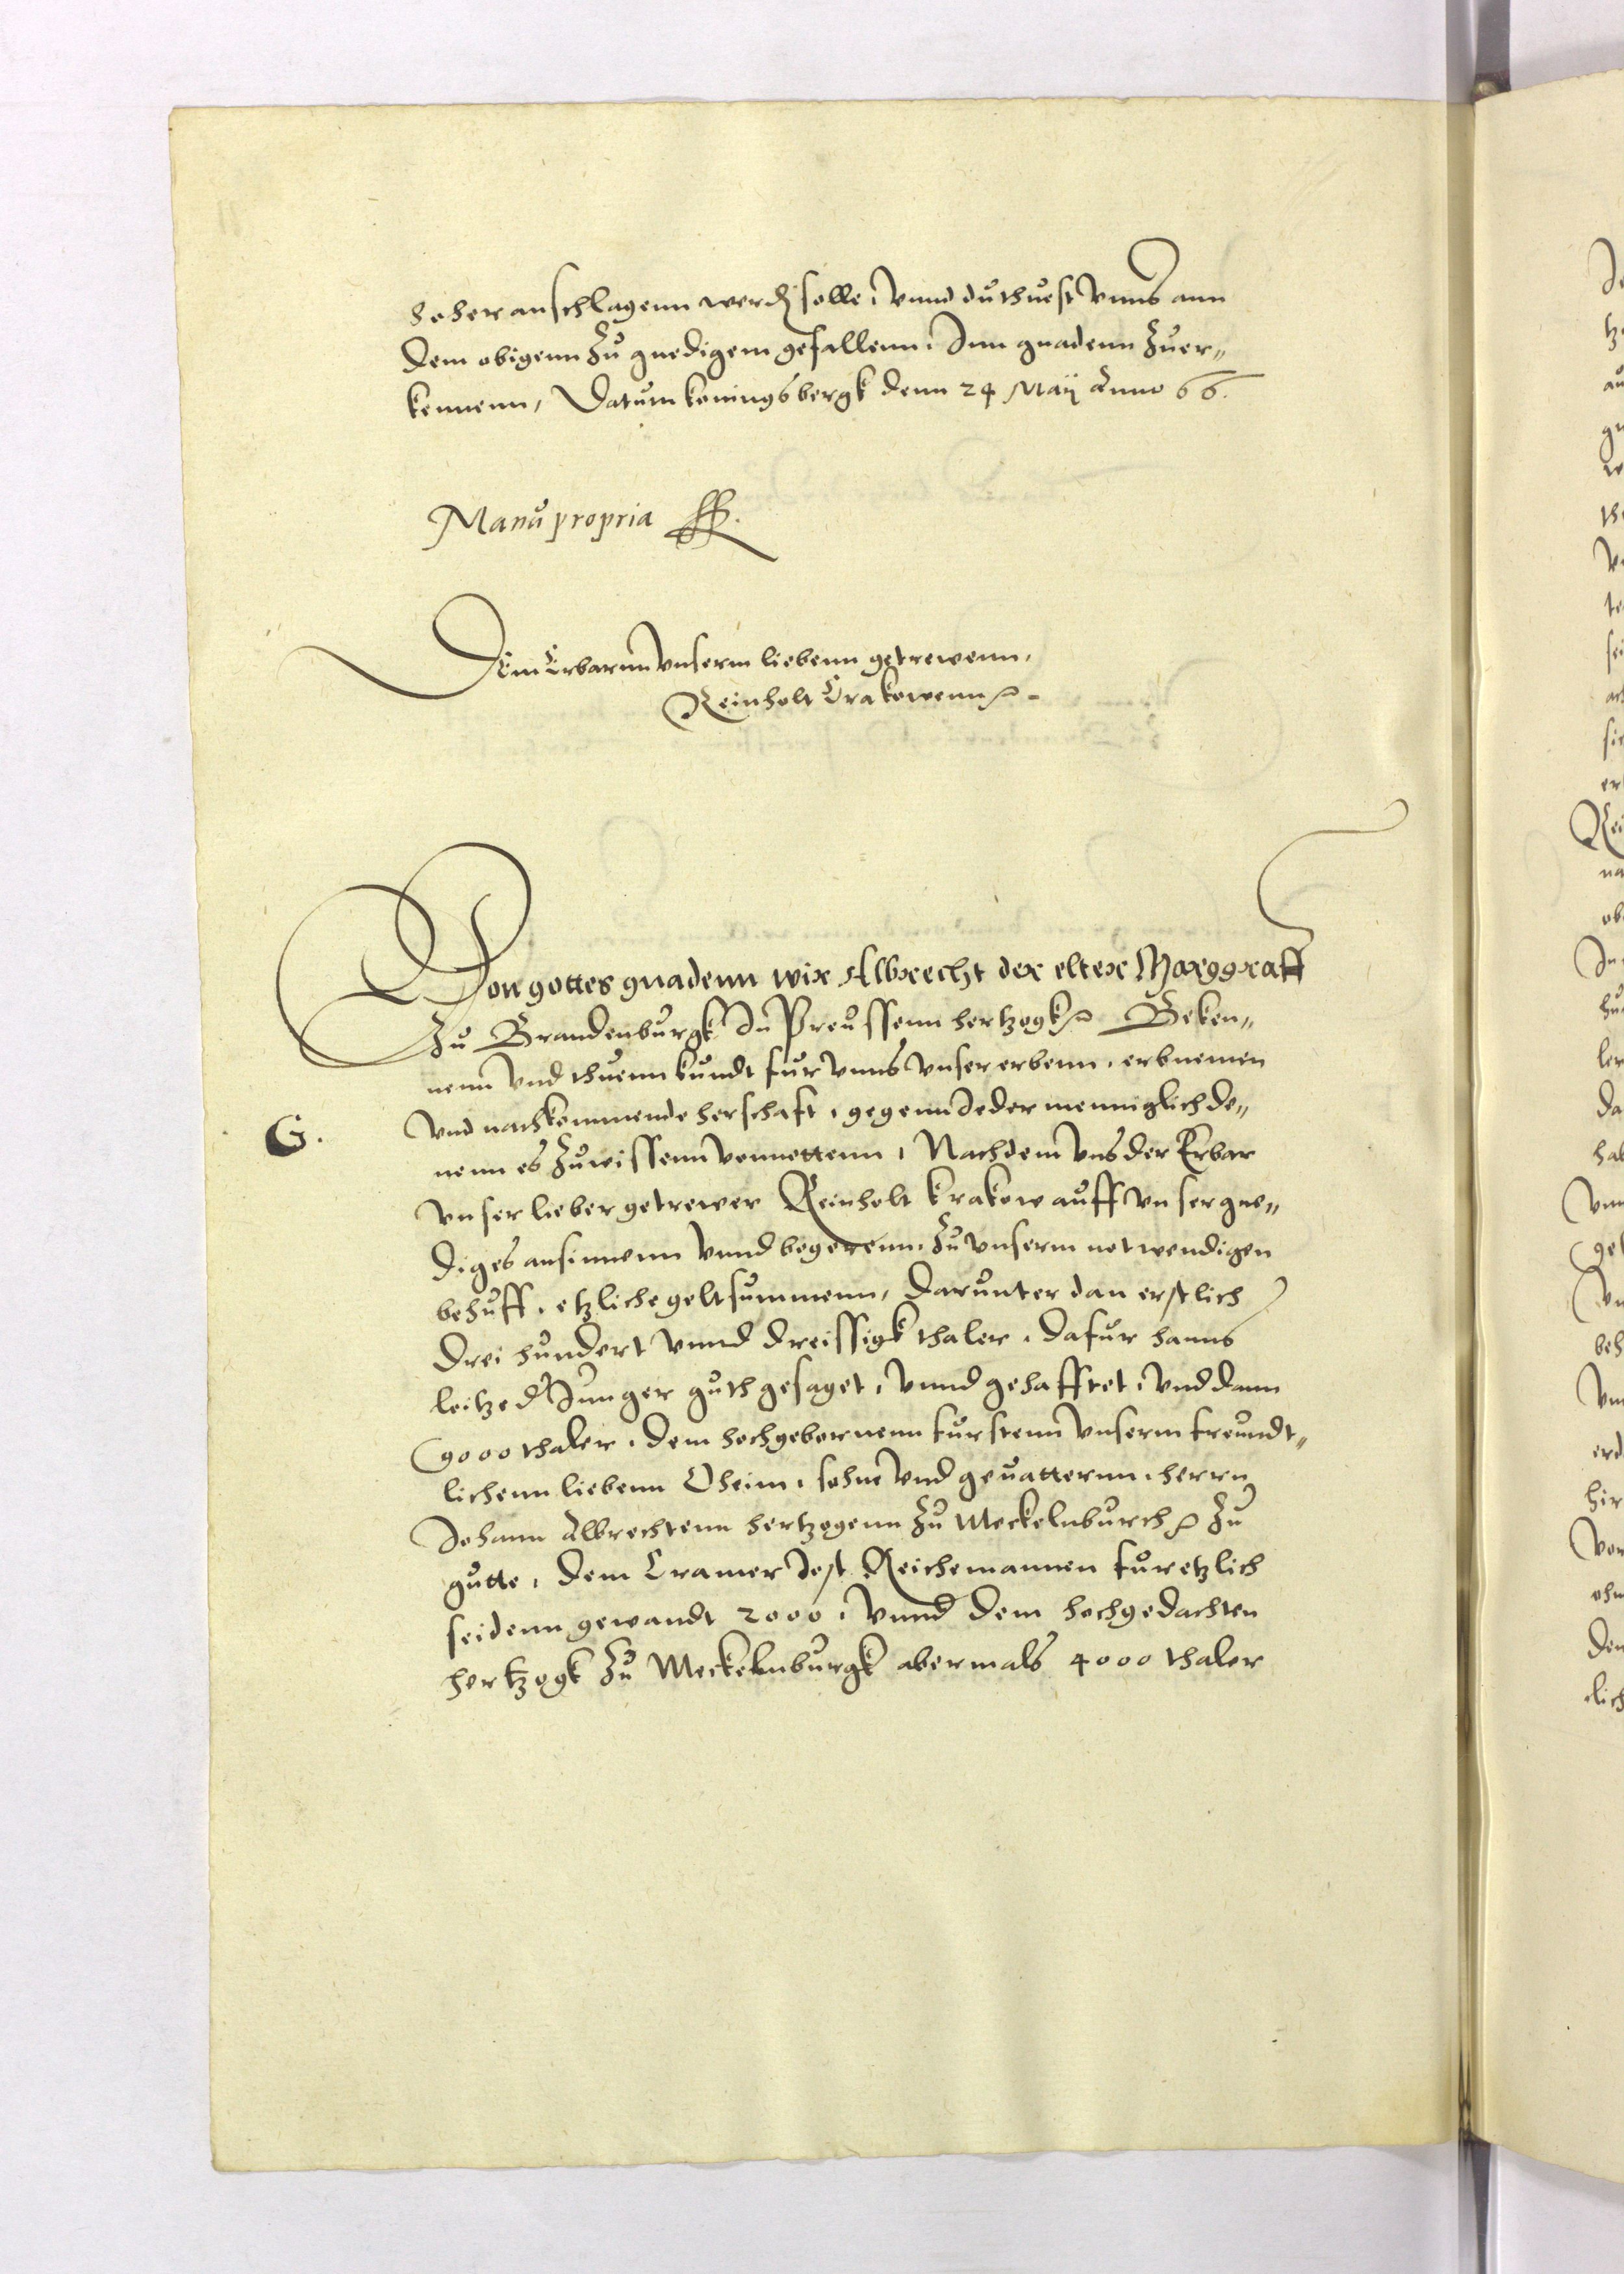 hoher anschlagenn werdẽ solle, Vnnd du thuest Vnns ann
dem obigenn zu gnedigem gefallenn, Inn gnadenn zuer„
kennenn, Datum koningsbergk denn 24 Maij Anno 66.
Manu propria
Dem Erbarnn Vnserm liebenn getrewenn,
Reinholt Crakowenn
Von gottes gnadenn wir Albrecht der elter Marggraff
Zu Brandenburgk In Preussenn hertzogk Beken„
nenn vnd thuenn kundt fur vnns vnser erbenn, erbnemen
vnd nachkommende herschaft, gegenn Jeder menniglich de„
G.
nenn es zuwissenn vonnettenn, Nachdem Vns der Erbar
vnser lieber getrewer Reinholt Krakow auff vnser gne„
diges ansinnenn vnnd begerenn, zu vnserm notwendigen
behuff, etzliche geltsummenn, darunter dan erstlich
drei hundert vnnd dreissigk thaler, dafur hanns
leitze d Junger guth gesaget, vnnd gehafftet, vnd dann
9000 thaler, dem hochgebornenn furstenn vnserm freundt„
lichenn liebenn Oheim, sohne vnd geuatternn, herrn
Johann Albrechtenn hertzogenn zu Meckelnburch zu
gutte, dem Cramer Jost Reichemannen fur etzlich
seidenn gewandt 2000, vnnd dem hochgedachten
hertzogk zu Meckelnburgk abermals 4000 thaler